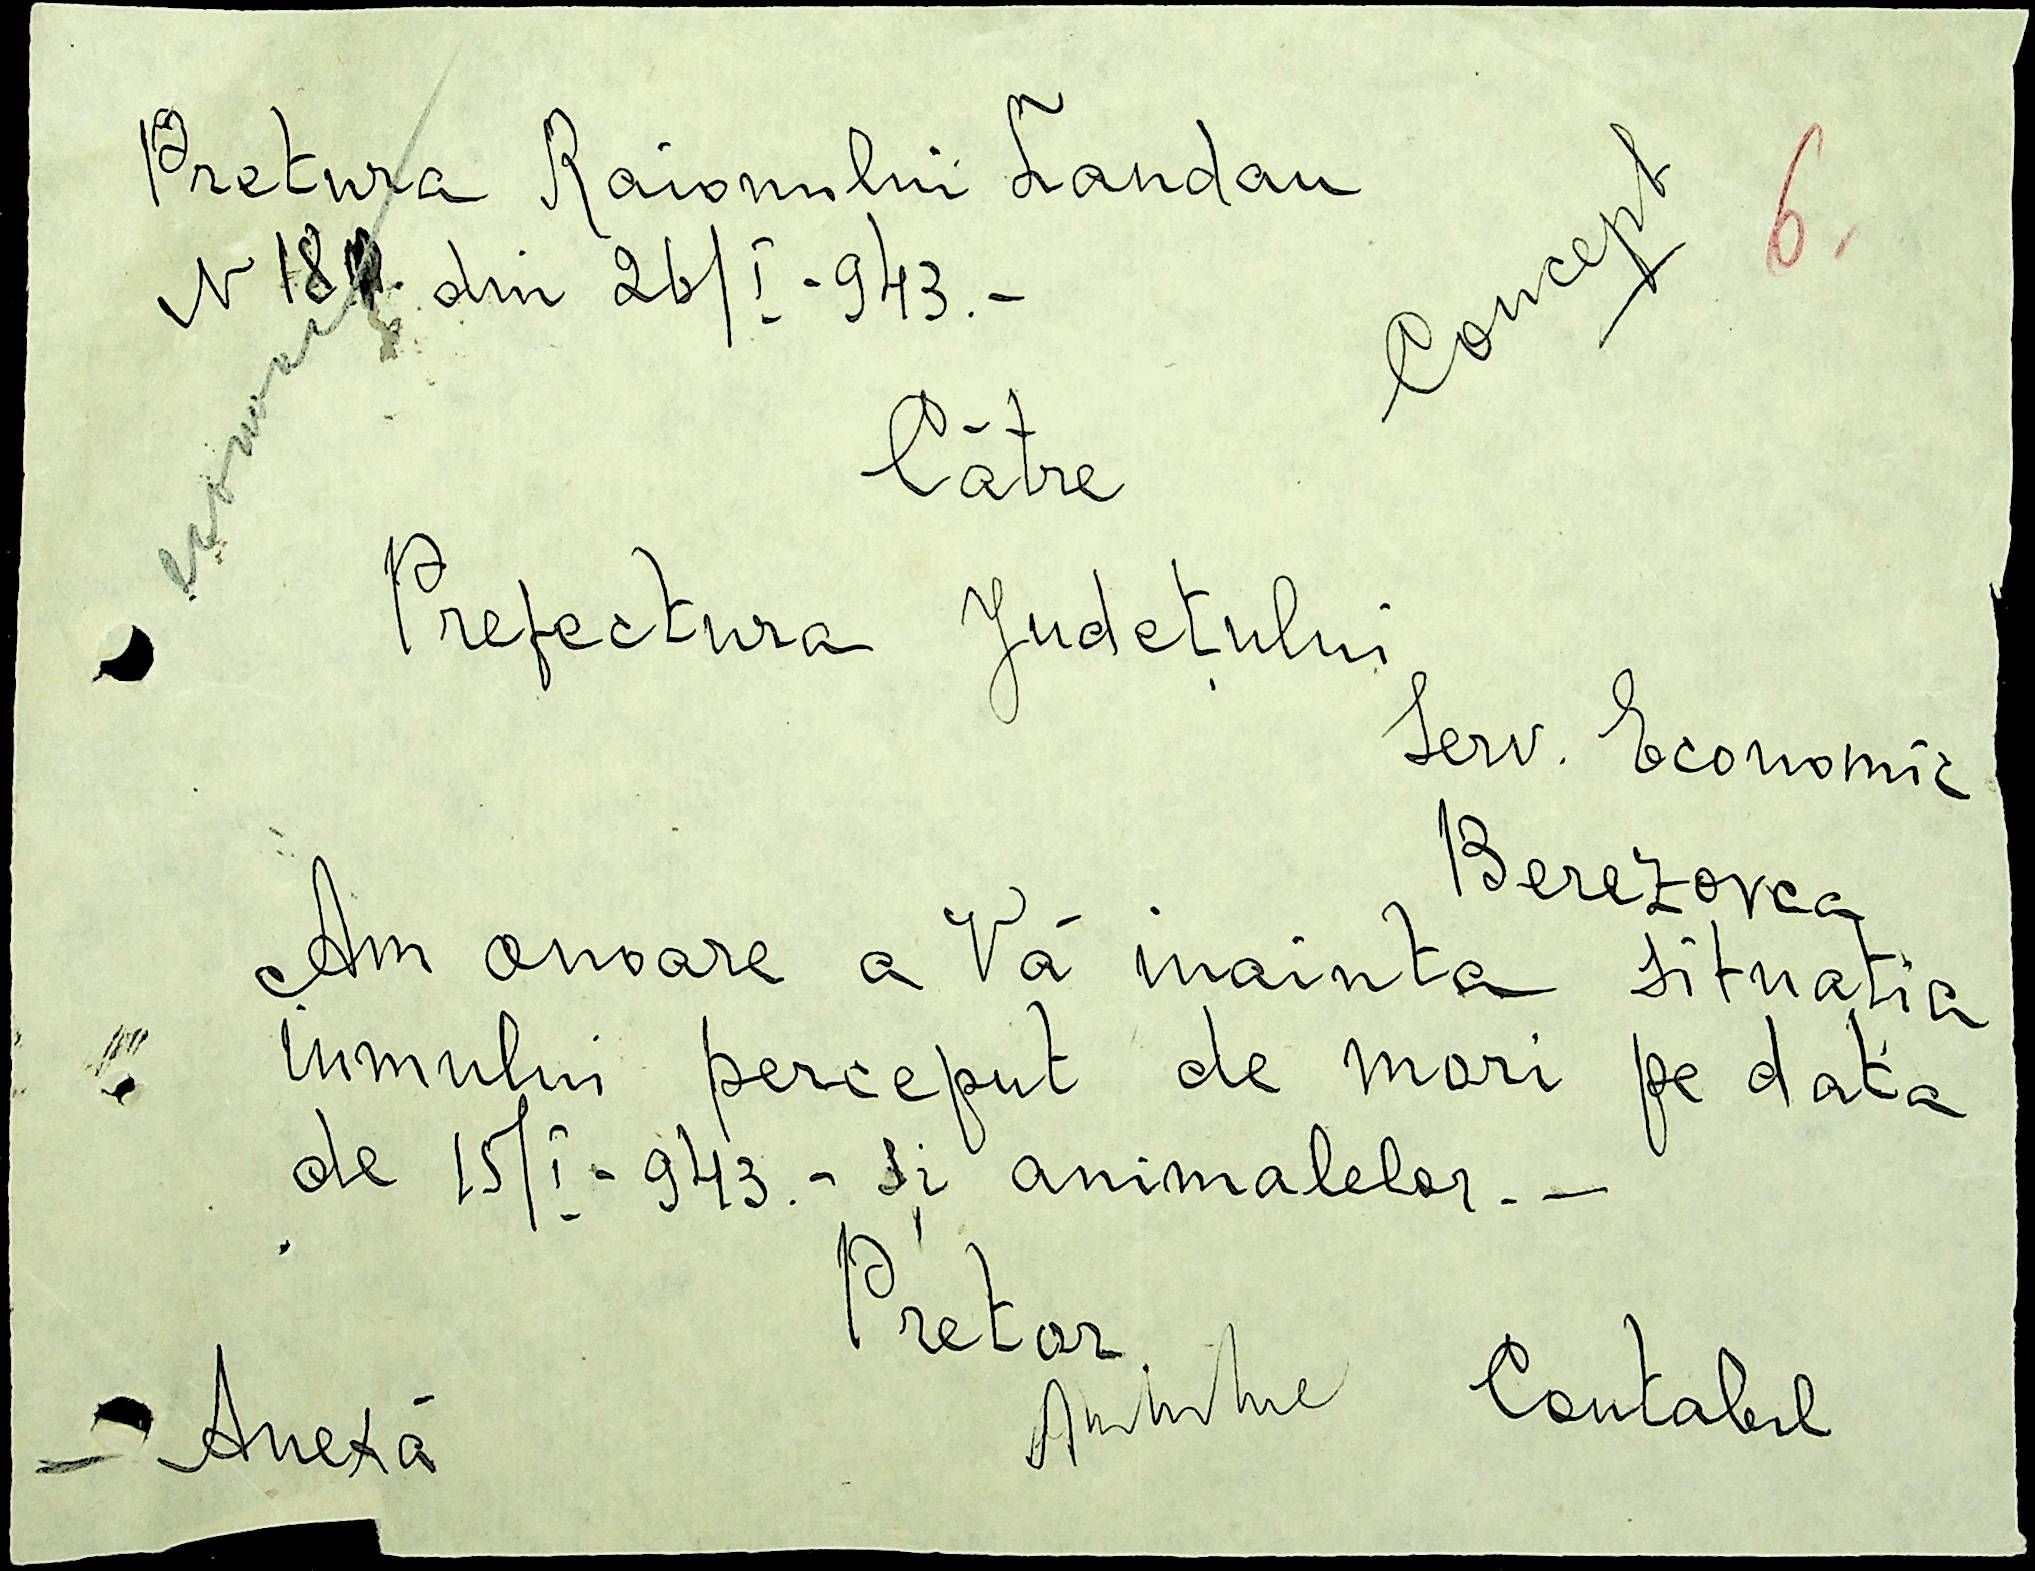 Pretura Raionului Landau
N 18 din 26/I-943.-
Concept
6.
Către
Prefectura Județului
Serv. Economic
Berezovca
Am onoare a Vă inainta situatia
iumului perceput de mori pe data
de 15/I-943.- și animalelor.-
Pretor
Contabil
Anexă